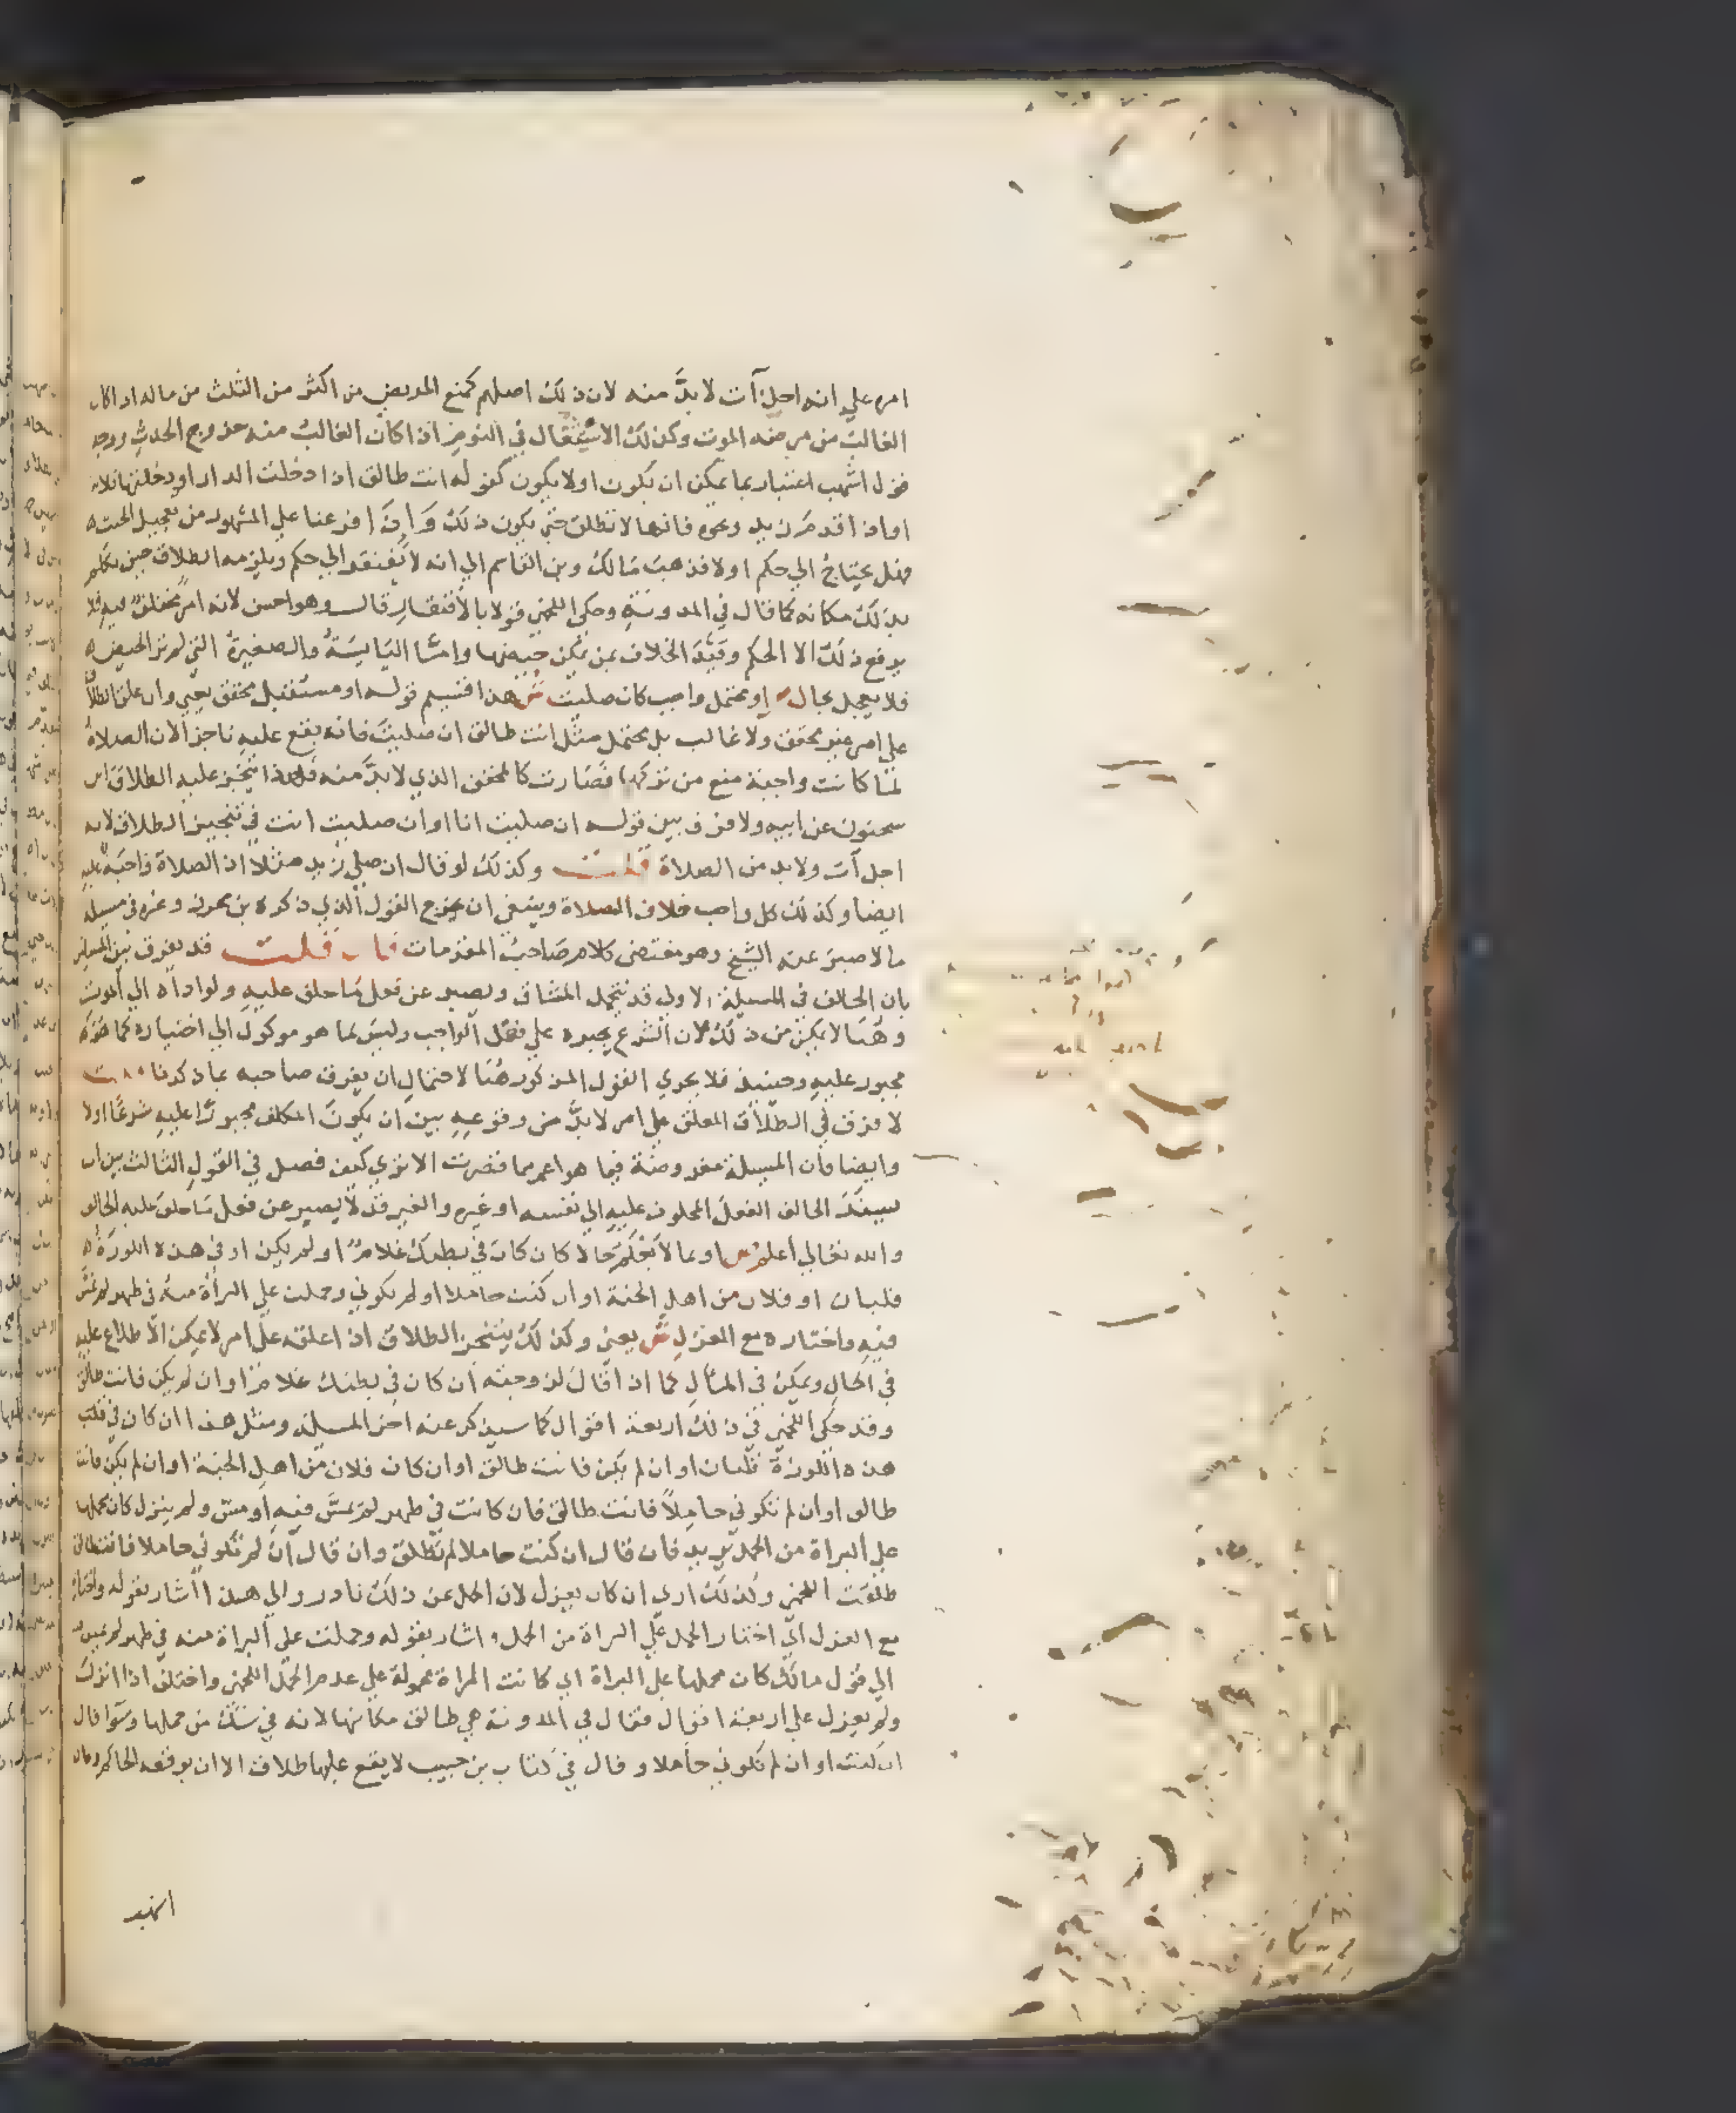 امره علي انه اجل آت لا بدَّ منه لان ذلك اصلهم كمنع المريض من اكثر من الثلث من ماله اذا كان
الغالب من مرضه الموت وكذلك الاستثقال في النوم اذا كان الغالب منه خروج الحدث ووجه
قول اشهب اعتبار بما يمكن ان يكون اولا يكون كقوله انت طالق اذا دخلت الدار او دخلتها فلانة
او اذا قدم زيد ونحوه فانها لا تطلق حتى يكون ذلك واذا فرعنا علي المشهور من تعجيل الحنث ه
فهل يحتاج الي حكم اولا فذهب مالك وبن القاسم الي انه لا يفتقر الي حكم ويلزمه الطلاق حين تكلم
بذلك مكانه كما قال في المدونة وحكى اللخمي قولا بالافتقار قال وهو احسن لانه امر مختلف فيه فلا
يرفع ذلك الا الحكم وقيد الخلاف بمن يمكن حيضها وامثا اليايسة والصغيرة التي لم تر الحيض ه
فلا يعجل بحال ص او محتمل واجب كان صليت ش هذا قسيم قوله او مستقبل محقق يعني وان علق الطلاق
علي امر غير محقق ولا غالب بل محتمل مثل انت طالق ان صليت فانه يقع عليه ناجزا لان الصلاة
لما كانت واجبة منع من تركها فصارت كالمحقق الذي لا بدَّ منه فلهذا ينجز عليه الطلاق ابن
سحنون عن ابيه ولا فرق بين قوله ان صليت انا او ان صليت انت في تنجيز الطلاق لانه
اجل آت ولا بد من الصلاة قلت وكذلك لو قال ان صلي زيد مثلا اذ الصلاة واجبة عليه
ايضا وكذلك كل واجب خلاف الصلاة وينبغي ان يخرج القول الذي ذكره بن محرز وغيره في مسيلة
ما لا صبر عنه الشيخ وهو مقتضى كلام صاحب المقدمات فان قلت قد يفرق بين المسيلتين
بان الحالف في المسيلة الاولى قد يتحمل المشاق ويصبر عن فعل ما حلف عليه ولو اداه الي الموت
وهنا لا يمكن من ذلك لان الشرع يجبره علي فعل الواجب وليس بما هو موكول الي اختياره كما هو
مجبور عليه وحينيذ فلا يجري القول المذكور هنا لاحتمال ان يفرق صاحبه بما ذكرنا قلت
لا فرق في الطلاق المعلق علي امر لا بدَّ من وقوعه بين ان يكون المكلف مجبورًا عليه شرعًا اولا
وايضا فان المسيلة مفروضة فيما هو اعم مما قصرت الا تري كيف فصل في القول الثالث بين ان
يسند الحالف الفعل المحلوف عليه الي نفسه او غيره والغير قد لا يصبر عن فعل ما حلف عليه الحالف
والله تعالي اعلم ص او بما لا يعلم حالا كان كان في بطنك غلام او لم يكن او في هذه اللوزة ه
قلبان او فلان من اهل الجنة او ان كنت حاملا او لم تكوني وحملت علي البرأة منه في طهر لم يمس
فيه واختاره مع العزل ش يعني وكذلك يتنجز الطلاق اذا علقه علي امر لا يمكن الاطلاع عليه
في الحال ويمكن في المآل كما اذا قال لزوجته ان كان في بطنك غلامًا او ان لم يكن فانت طالق
وقد حكى اللخمي في ذلك اربعة اقوال كما سيذكر عنه اخر المسيلة ومثل هذا ان كان في قلب
هذه اللوزة قلبان او ان لم يكن فانت طالق او ان كان فلان من اهل الجنة او ان لم يكن فانت
طالق او ان لم تكوني حاملًا فانت طالق فان كانت في طهر لم يمس فيه او مس ولم ينزل كان محملها
علي البراة من الحمل يريد فان قال ان كنت حاملا لم تطلق وان قال ان لم تكوني حاملا فانت طالق
طلقت اللخمي وكذلك اري ان كان يعزل لان الحمل عن ذلك نادر والي هذا اشار بقوله واختاره
مع العزل اي اختار الحمل علي البراة من الحمل و اشار بقوله وحملت علي البراة منه في طهر لم يمس فيه
الي قول مالك كان محملها علي البراة اي كانت المراة محمولة علي عدم الحمل اللخمي واختلف اذا انزل
ولم يعزل علي اربعة اقوال فقال في المدونة هي طالق مكانها لانه في شك من حملها وسوا قال
ان كنت او ان لم تكوني حاملا وقال في كتاب بن حبيب لا يقع عليها طلاق الا ان يوقعه الحاكم وقال